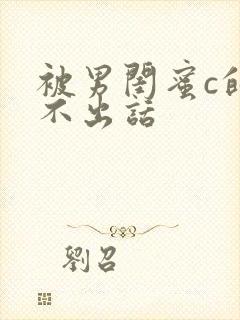 被男閨蜜c的
不出話
劉召